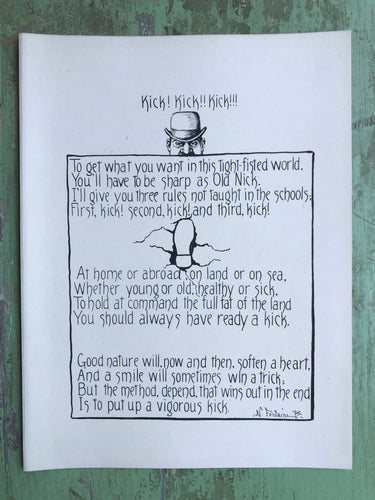 Kick! Kick!! Kick!!!
To get what you want in this tight-fisted world,
You'll have to be sharp as Old Nick.
I'll give you three rules not taught in the schools;
First, kick! second, kick! and third, kick!
At home or abroad; on land or on sea,
Whether young or old; healthy or sick.
To hold at command the full fat of the land
You should always have ready a kick.
Good nature will, now and then, soften a heart,
And a smile will sometimes win a trick;
But the method, depend, that wins out in the end
Is to put up a vigorous kick.